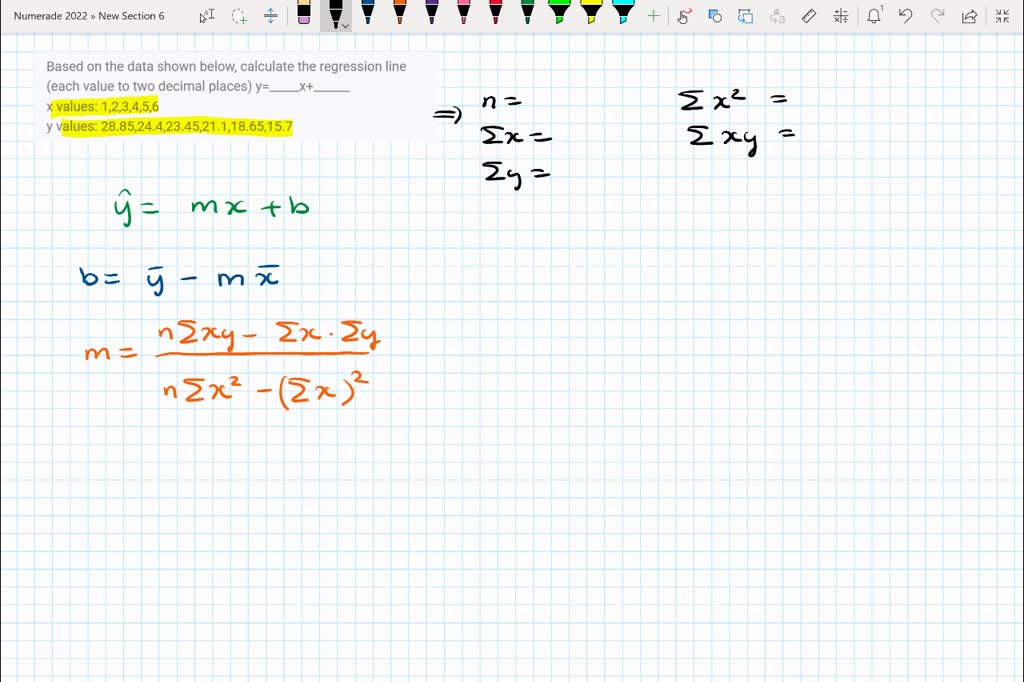 Numerade 2022 » New Section 6
Based on the data shown below, calculate the regression line
(each value to two decimal places) y=____x+_____
x values: 1,2,3,4,5,6
y values: 28.85,24.4,23.45,21.1,18.65,15.7
⇒ n =
Σx =
Σy =
Σx² =
Σxy =
ŷ = mx + b
b = ȳ - m x̄
m = nΣxy - Σx · Σy
nΣx² - (Σx)²